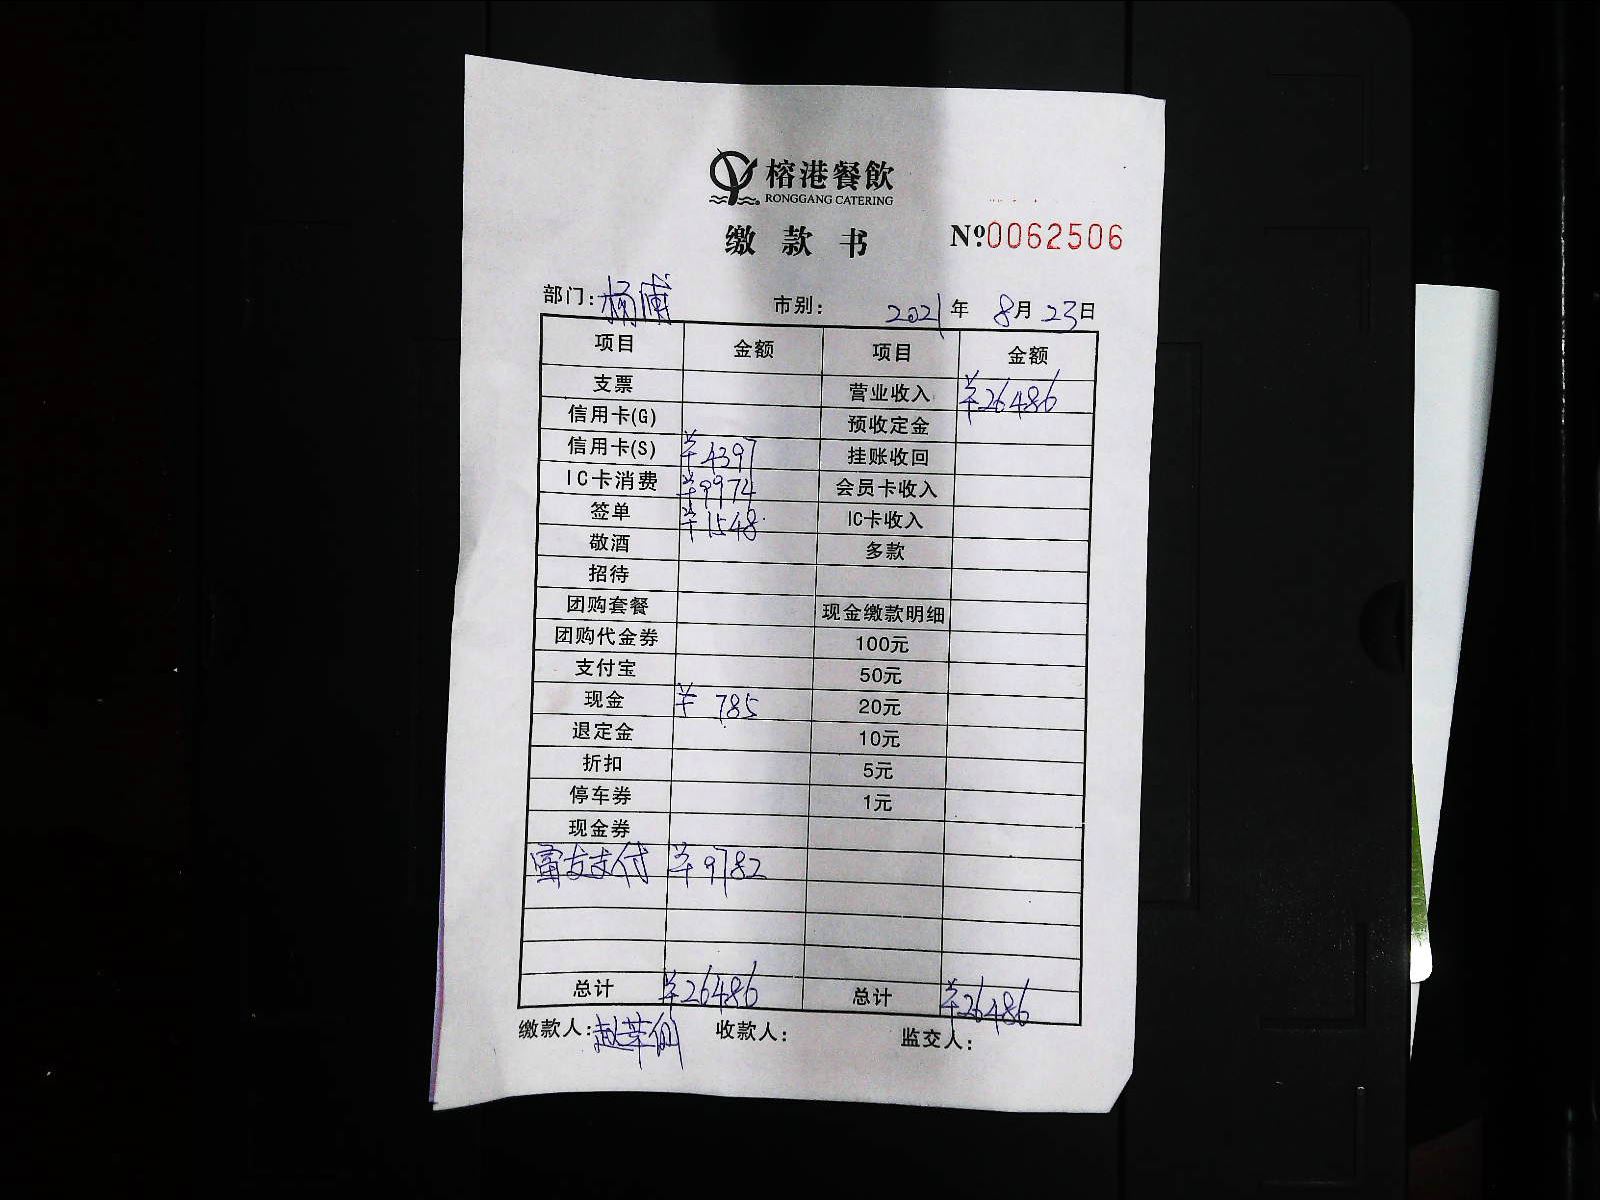 榕港餐飲
RONGGANG CATERING
缴款书 Nº0062506
部门: 杨浦 市别: 2021年 8月23日
项目 金额 项目 金额
支票 营业收入 ¥26486
信用卡(G) 预收定金
信用卡(S) ¥4397 挂账收回
IC卡消费 ¥9974 会员卡收入
签单 ¥1548 IC卡收入
敬酒 多款
招待
团购套餐 现金缴款明细
团购代金券 100元
支付宝 50元
现金 ¥785 20元
退定金 10元
折扣 5元
停车券 1元
现金券
富友支付 ¥9782
总计 ¥26486 总计 ¥26486
缴款人: 收款人: 监交人: